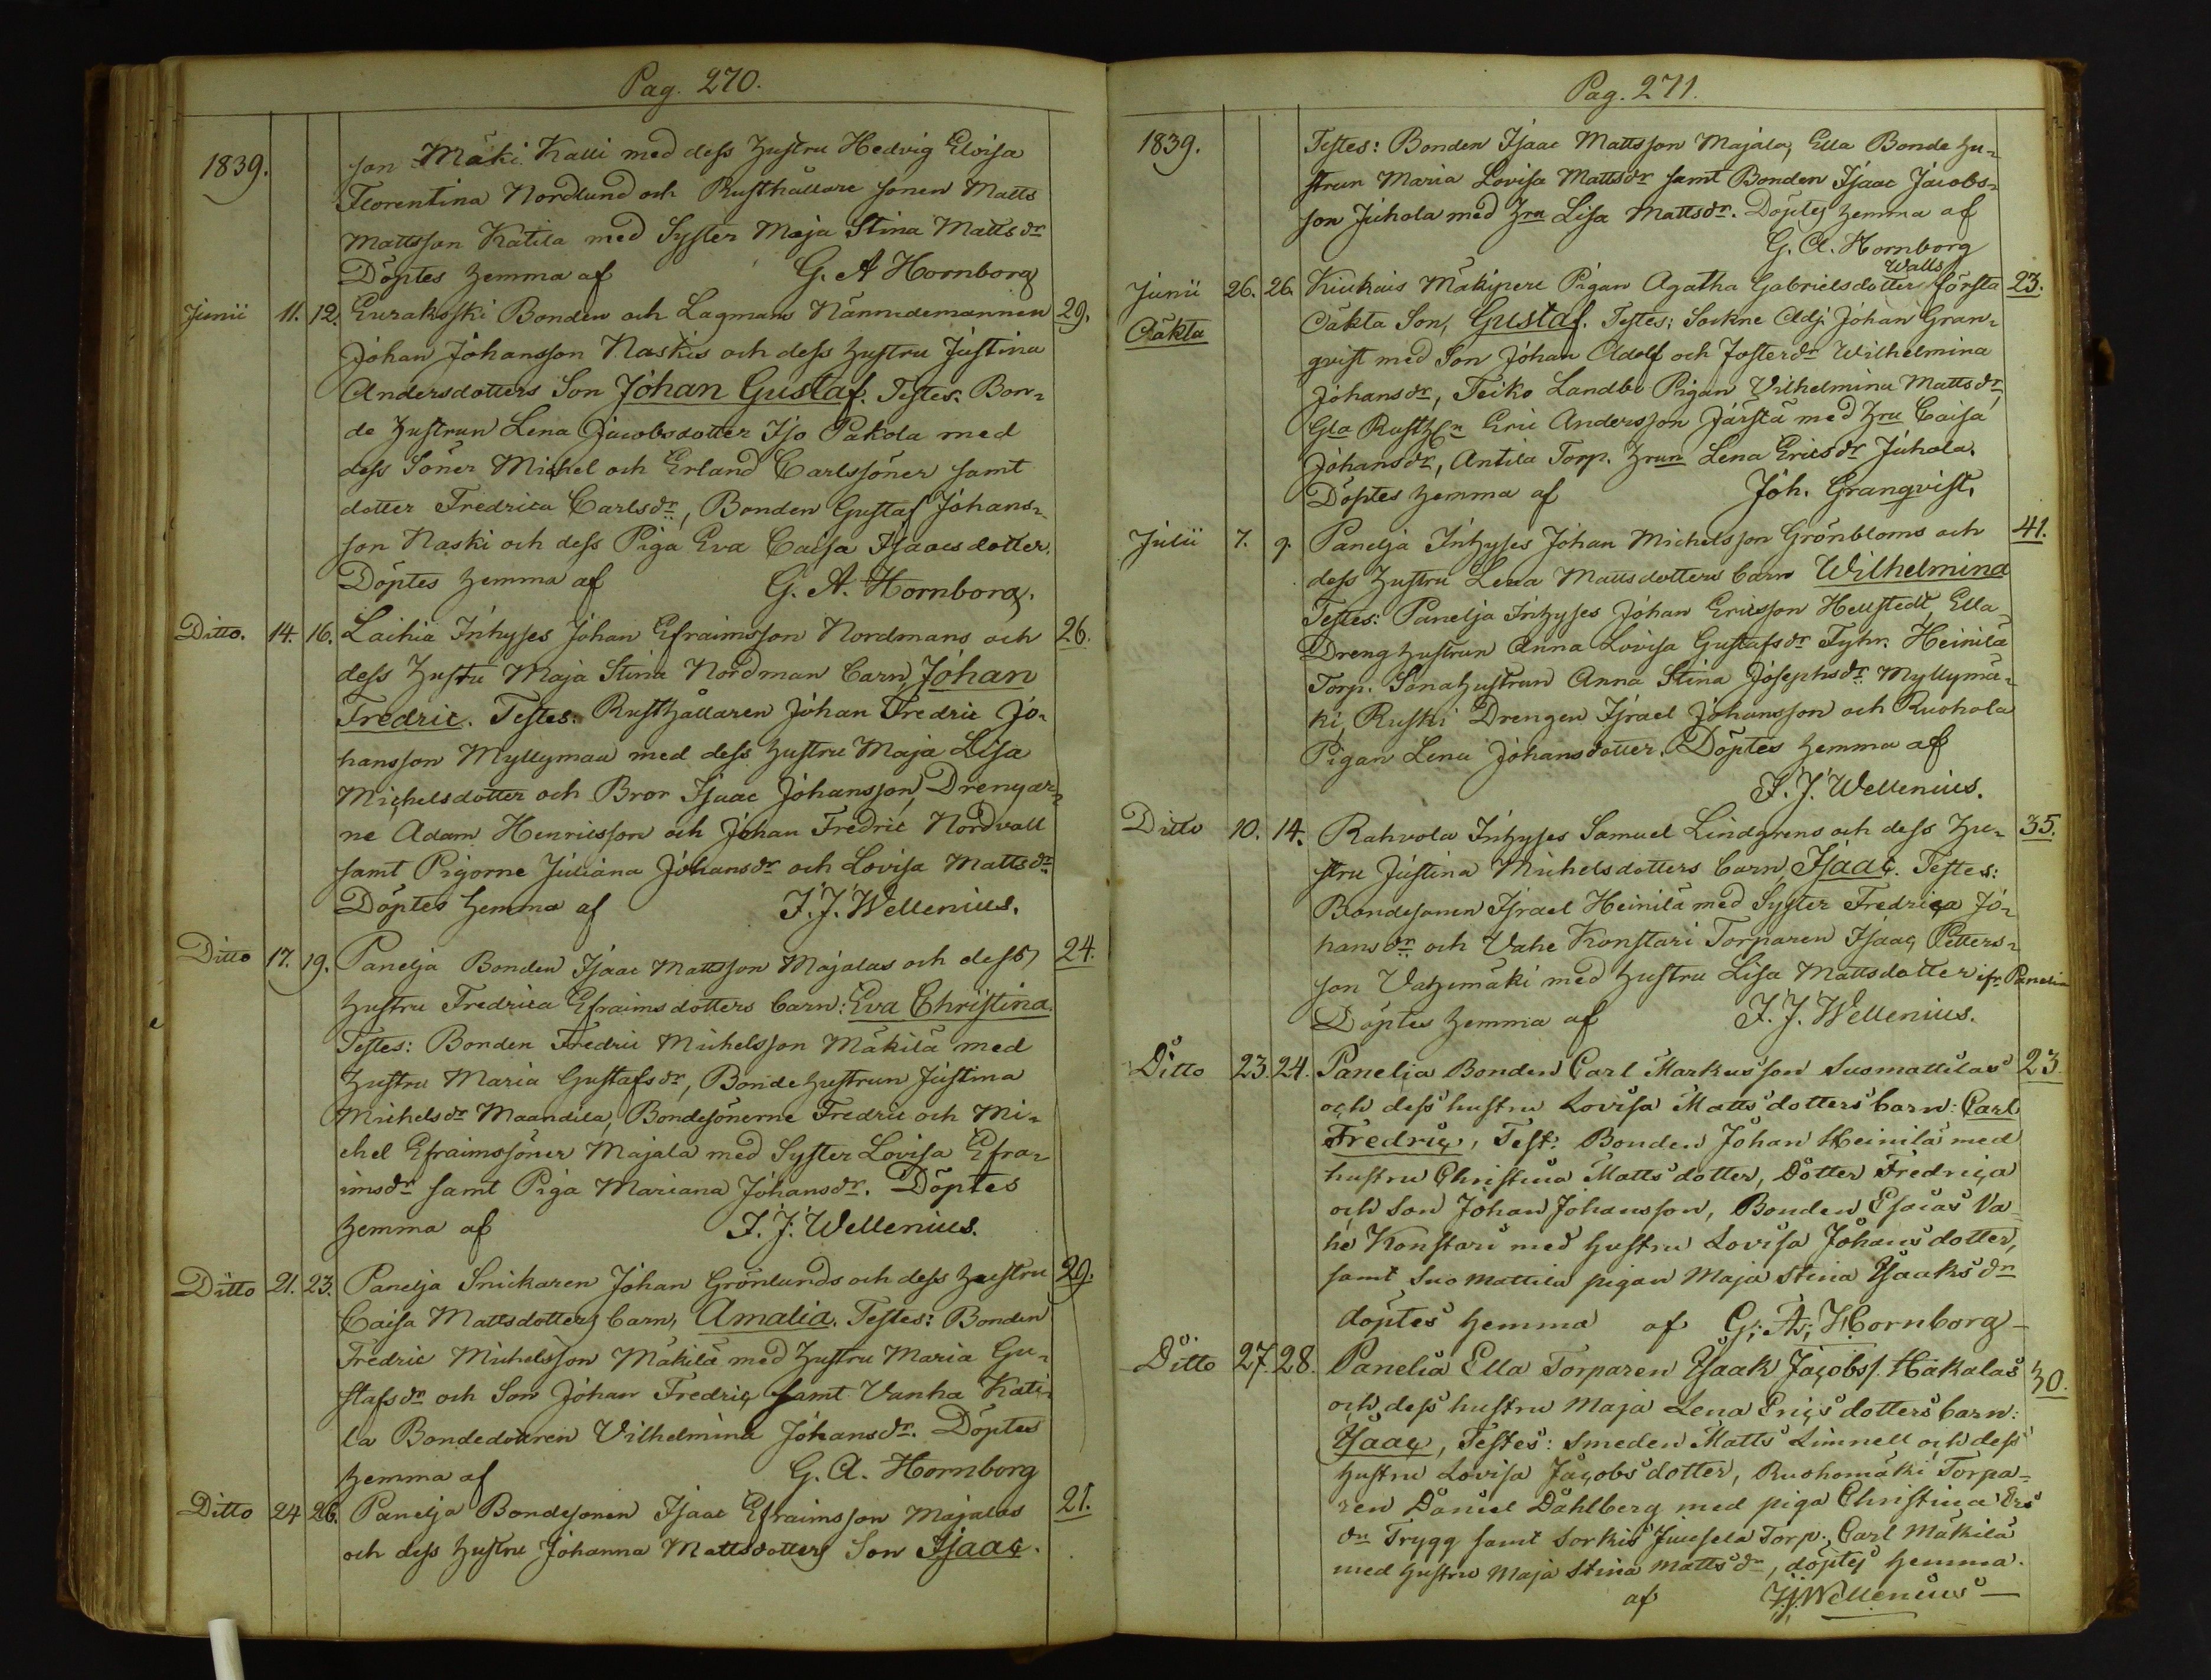 Pag. 270.
1839.
son Mäki Kalli med dess Hustru Hedvig Elvisa
Florentina Nordlund och Rusthållare sonen Matts
Mattsson Katila med Syster Maja Stina Mattsdr
Döptes hemma af G. A Hornborg
Junii 11. 12. Eurakoski Bonden och Lagmans Nämndemannen 29.
Johan Johansson Naskis och dess hustru Justina
Andersdotters Son Johan Gustaf. Testes. Bon-
de Hustrun Lena Jacobsdotter Iso Pakola med
dess Söner Michel och Erland Carlssöner samt
dotter Fredrica Carlsdr, Bonden Gustaf Johans-
son Naski och dess Piga Eva Caisa Isaacsdotter.
Döptes hemma af G. A. Hornborg.
Ditto. 14. 16. Laihia Inhyses Johan Efraimsson Nordmans och 26.
dess Hustru Maja Stina Nordman barn, Johan
Fredric. Testes: Rusthållaren Johan Fredric Jo-
hansson Myllymaa med dess hustru Maja Lisa
Michelsdotter och Bror Isaac Johansson, Drengar-
ne Adam Henricsson och Johan Fredric Nordvall
samt Pigorne Juliana Johansdr och Lovisa Mattsdr
Döptes hemma af F. J. Wellenius.
Ditto 17. 19. Panelja Bonden Isaac Mattsson Majalas och dess 24.
Hustru Fredrica Efraimsdotters barn: Eva Christina.
Testes: Bonden Fredric Michelsson Mäkilä med
Hustru Maria Gustafsdr, Bonde hustrun Justina
Michelsdr Maandila, Bondesönerne Fredric och Mi-
chel Efraimssöner Majala med Syster Lovisa Efra-
imsdr samt Piga Mariana Johansdr. Döptes
hemma af F. J. Wellenius.
Ditto 21. 23. Panelja Snickaren Johan Grönlunds och dess hustru 29.
Caisa Mattsdotters barn, Amalia. Testes: Bonden
Fredric Michelsson Mäkilä med hustru Maria Gu-
stafsdr och Son Johan Fredric samt Vanha Kati-
la Bondedottren Vilhelmina Johansdr. Döptes
hemma af G. A. Hornborg
Ditto 24 26. Panelja Bondesonen Isaac Efraimsson Majalas 21.
och dess hustru Johanna Mattsdotters Son Isaac.
Pag. 271.
1839.
Testes: Bonden Isaac Mattsson Majala, Ella Bonde hu-
strun Maria Lovisa Mattsdr samt Bonden Isaac Jacobs-
son Juhola med Hru Lisa Mattsdr. Döptes hemma af
G. A. Hornborg
Walls
Junii 26. 26. Kiukais Mäkiperi Pigan Agatha Gabrielsdotters första 23.
Oäkta
Oäkta Son, Gustaf. Testes: Sockne Adj. Johan Gran-
qvist med Son Johan Adolf och Fosterdr Wilhelmina
Johansdr, Teiko Landbo Pigan Vilhelmina Mattsdr,
Gla Rusthn Eric Andersson Järstä med Hru Caisa
Johansdr, Antila Torp. Hrun Lena Ericsdr Juhola.
Döptes hemma af Joh. Granqvist.
Julii 7. 9. Panelja Inhyses Johan Michelsson Grönbloms och 41.
dess hustru Lena Mattsdotters barn Wilhelmina
Testes: Panelja Inhyses Johan Ericsson Hellstedt, Ella
Dreng hustrun Anna Lovisa Gustafsdr Fyhr. Heinilä
Torp. Sonahustrun Anna Stina Josephsdr Myllymä-
ki, Ruski Drengen Israel Johansson och Ruohola
Pigan Lena Johansdotter. Döptes hemma af
F. J. Wellenius.
Ditto 10. 14. Rahvola Inhyses Samuel Lindgrens och dess hu- 35.
stru Justina Michelsdotters barn, Isaac. Testes:
Bondesonen Israel Heinilä med Syster Fredrica Jo-
hansdr och Vahe Konstari Torparen Isaac Petters-
son Vahemäki med hustru Lisa Mattsdotter ifr. Panelia
Döptes hemma af F. J. Wellenius.
Ditto 23 24. Panelia Bonden Carl Markusson Suomattilas 23.
och dess hustru Lovisa Matts dotters barn: Carl
Fredric, Test: Bonden Johan Heinilä med
hustru Christina Matts dotter, Dotter Fredrica
och Son Johan Johansson, Bonden Esaias Va-
he Konstari med hustru Lovisa Johans dotter,
samt Suo mattila pigan Maja Stina Ysaaksdr
döptes hemma af G. A. Hornborg
Ditto 27. 28. Panelia Ella Torparen Ysaak Jacobss. Hakalas 30.
och dess hustru Maja Lena Erics dotters barn:
Ysaac, Testes: Smeden Matts Limnell och dess
hustru Lovisa Jacobs dotter, Ruohomäki Torpa-
ren Daniel Dahlberg med piga Christina Ers
dr Trygg samt Sorkis Juusela Torp. Carl Mäkilä
med hustru Maja Stina Mattsdr, döptes hemma.
af F. J. Wellenius